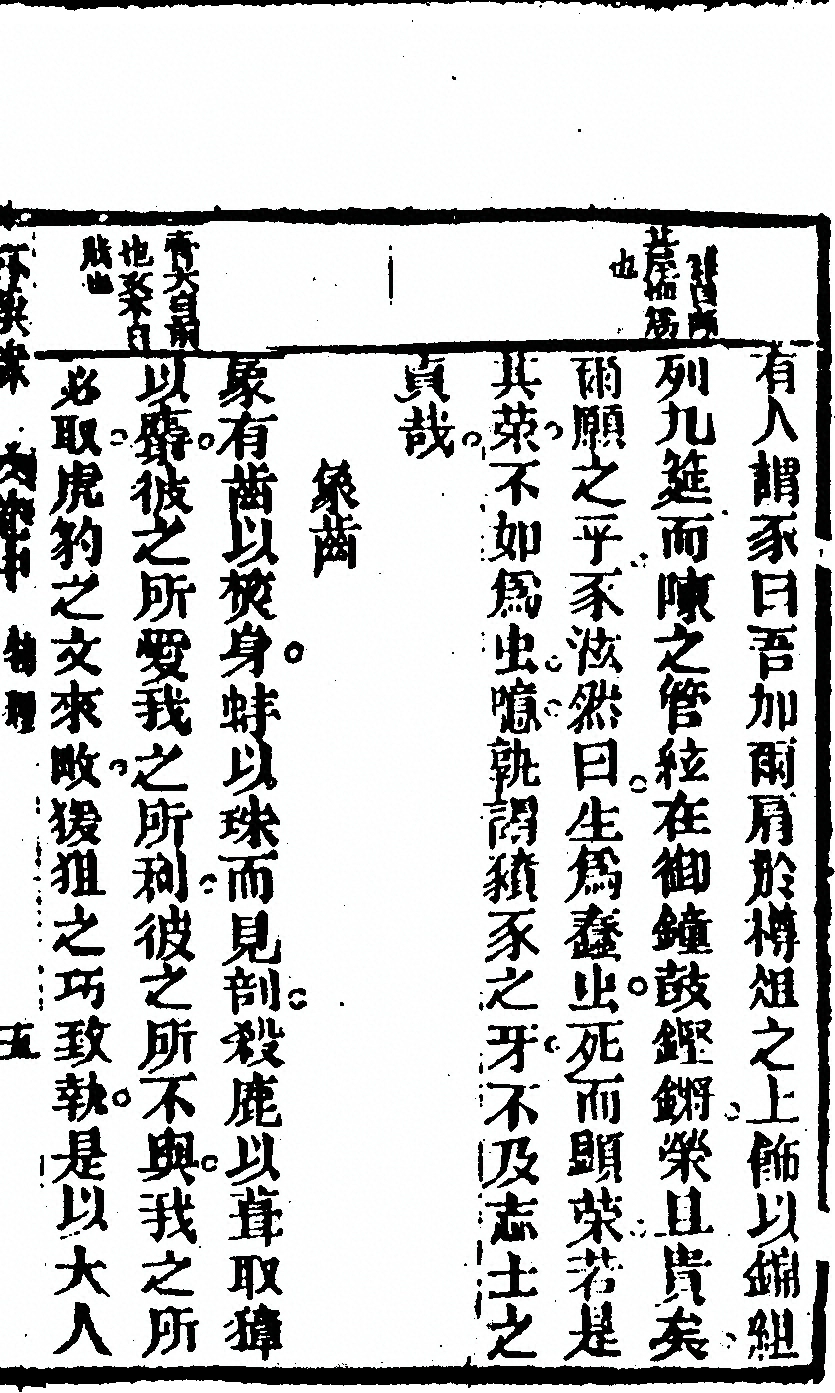 有人謂豕曰吾加爾肩於樽俎之上飾以錦組
列九筵而陳之管絃在御鐘鼓鏗鏘榮且貴矣
爾願之乎豕泫然曰生爲蠢出死而顯荣若是
其荣不如爲虫噫孰謂豶豕之牙不及志士之
貞哉
象齒
象有齒以焚身蚌以珠而見剖殺鹿以茸取獐
以臍彼之所愛我之所利彼之所不與我之所
必取虎豹之文來畋猨狙之巧致執是以大人
也
物理
五